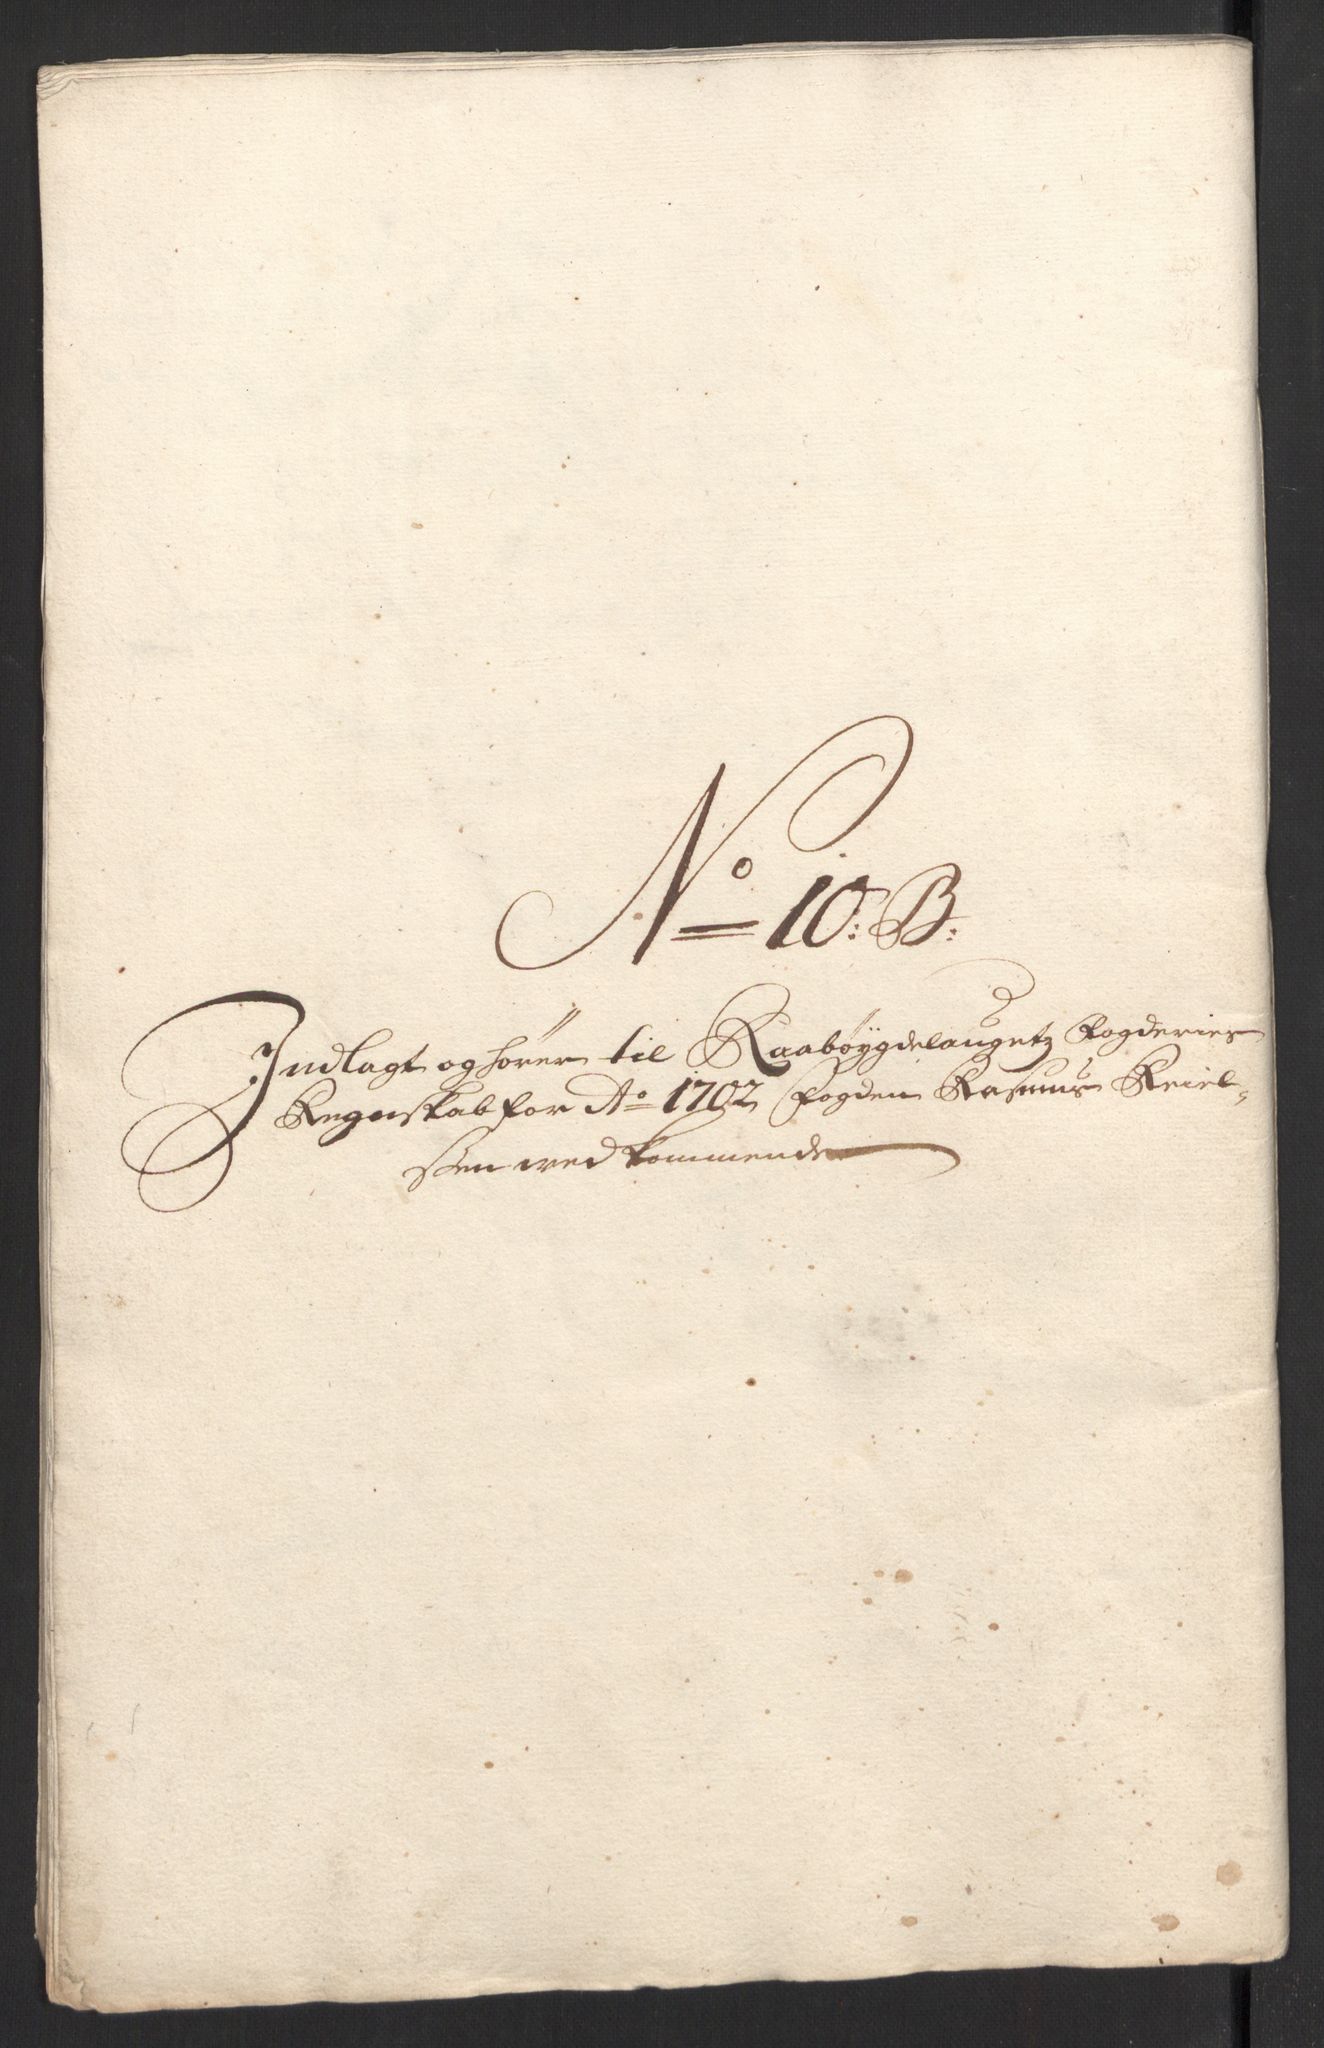 No 10: B:
Indlagt og hører til Raabøygdelaugetz Fogderies
Regnskab for Ao 1702 Fogden Rasmus Keiel-
sen ved kommende